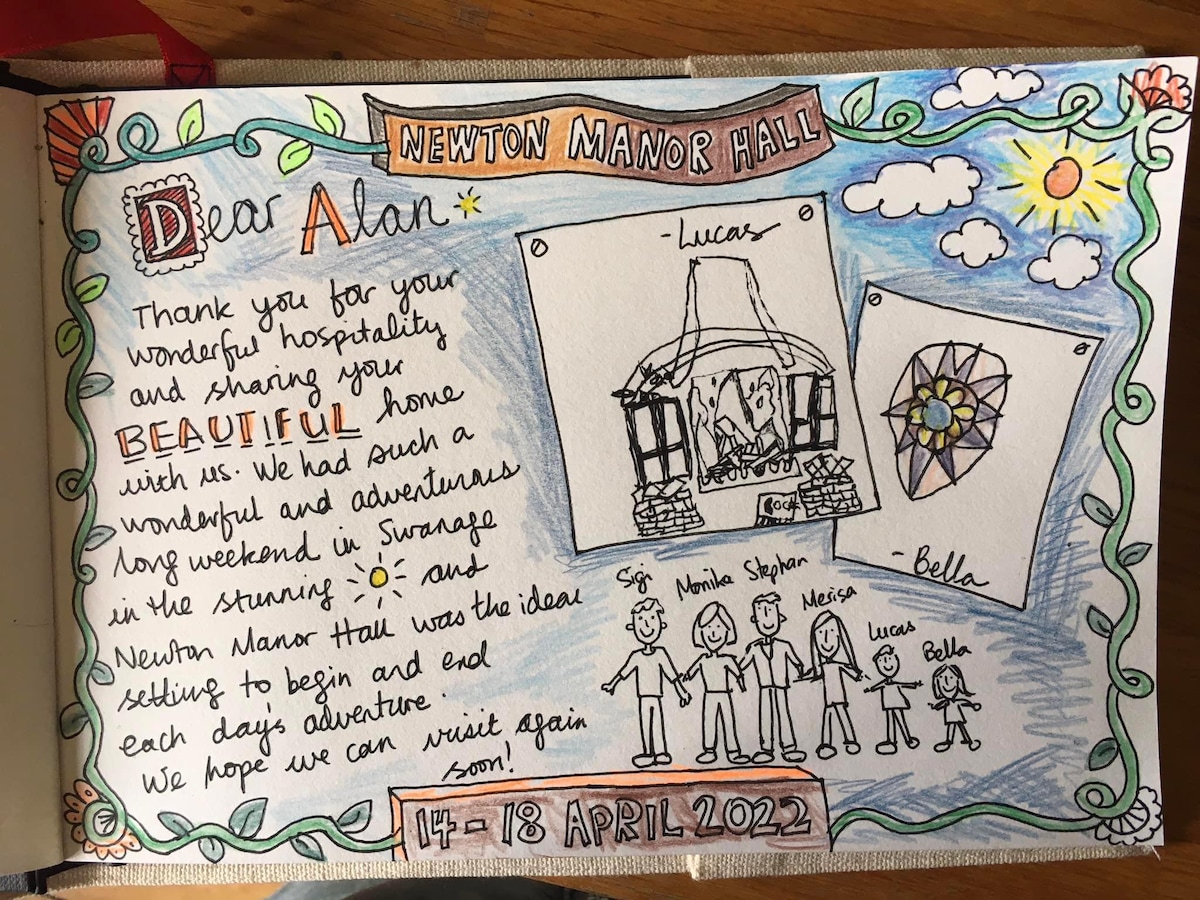 NEWTON MANOR HALL
Dear Alan
Thank you for your
wonderful hospitality
and sharing your
BEAUTIFUL home
with us. We had such a
wonderful and adventurous
long weekend in Swanage
in the stunning and
Newton Manor Hall was the ideal
setting to begin and end
each day's adventure.
We hope we can visit again
soon!
-Lucas
-Bella
Sigi
Monika
Stephan
Merisa
Lucas
Bella
14-18 APRIL 2022